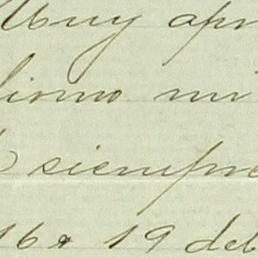 Muy apr
lismo mi
siempre
16 a 19 deb